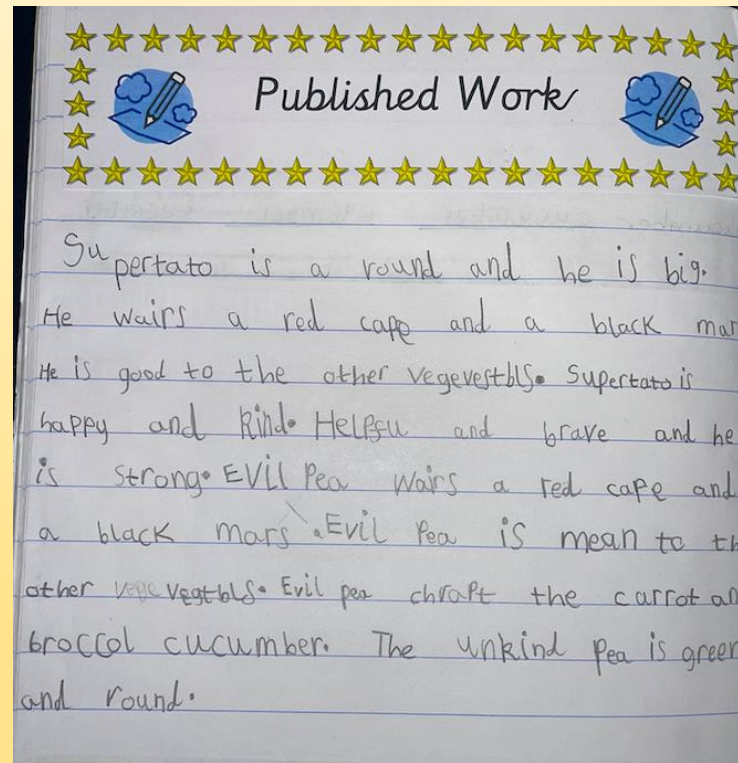 Published Work
Supertato is a round and he is big.
He wairs a red cape and a black mar
He is good to the other vegevestbls. Supertato is
happy and kind. Helpfu and brave and he
is strong. EVil Pea wairs a red cape and
a black mars. Evil Pea is mean to th
other vegevegtbls. Evil pea chrapt the carrot an
broccol cucumber. The unkind pea is green
and round.